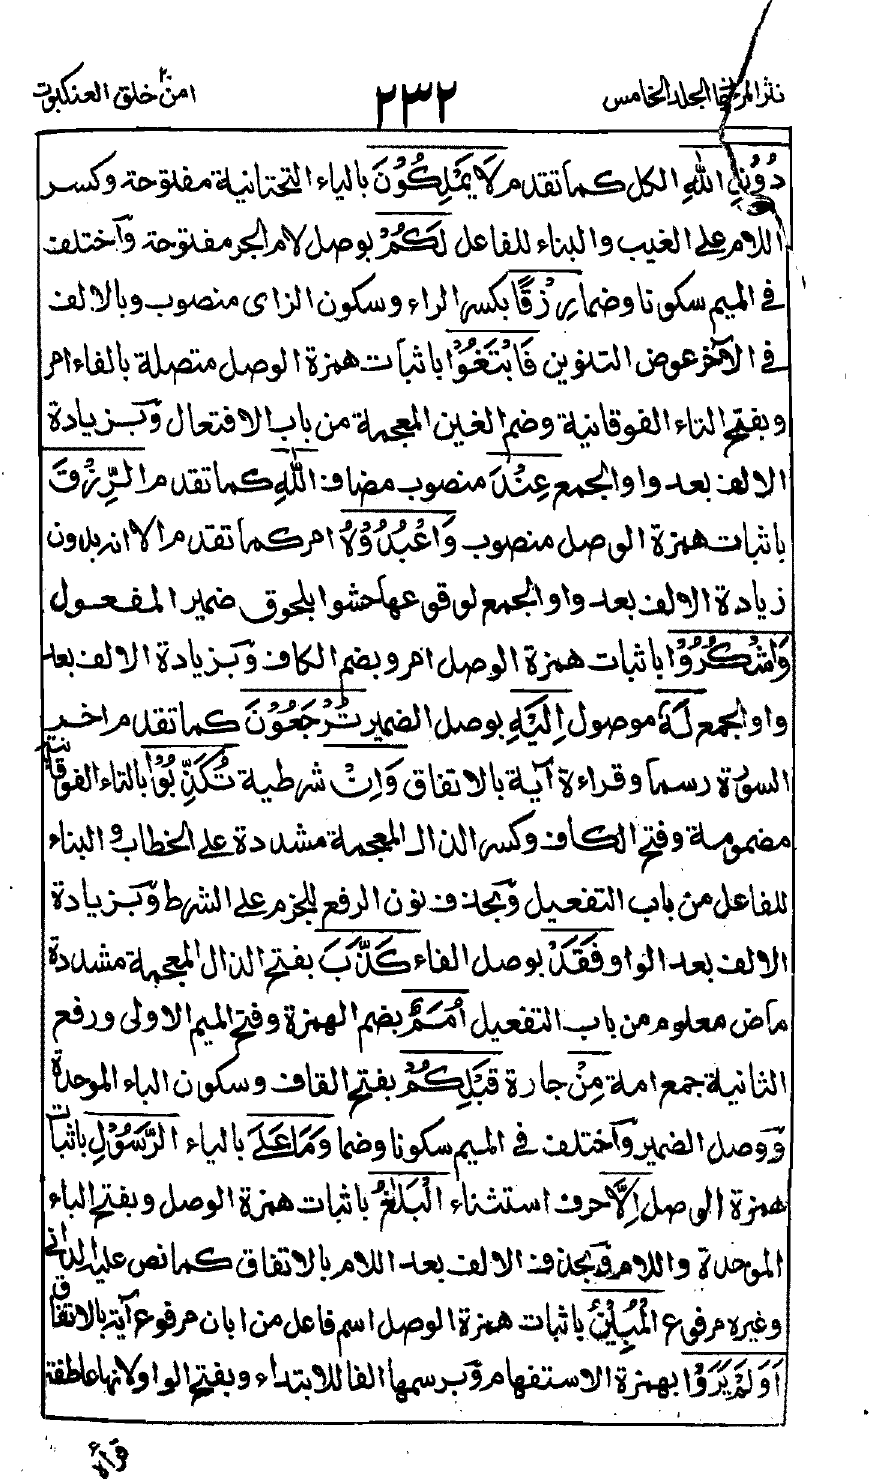 نثر المرجان المجلد الخامس ٢٣٢ امن خلق العنكبوت
دُوْنِ اللّٰهِ الكل كما تقدم لَا يَمْلِكُوْنَ بالياء التحتانية مفتوحة وكسر
اللام على الغيب والبناء للفاعل لَكُمْ بوصل لام الجر مفتوحة وآختلف
في الميم سكونا وضما رِزْقًا بكسر الراء وسكون الزاى منصوب وبالالف
في الآخر عوض التنوين فَابْتَغُوْا باثبات همزة الوصل متصلة بالفاء امر
وبفتح التاء الفوقانية وضم الغين المعجمة من باب الافتعال وَبزيادة
الالف بعد واو الجمع عِنْدَ منصوب مضاف اللّٰهِ كما تقدم الرِّزْقَ
باثبات همزة الوصل منصوب وَاعْبُدُوْهُ امر كما تقدم الا انه بدون
زيادة الالف بعد واو الجمع لوقوعها حشوا بلحوق ضمير المفعول
وَاشْكُرُوْا باثبات همزة الوصل امر وبضم الكاف وَبزيادة الالف بعد
واو الجمع لَهٗ موصول اِلَيْهِ بوصل الضمير تُرْجَعُوْنَ كما تقدم اخر
السورة رسما وقراءة آية بالاتفاق وَاِنْ شرطية تُكَذِّبُوْا بالتاء الفوقانية
مضمومة وفتح الكاف وكسر الذال المعجمة مشددة على الخطاب والبناء
للفاعل من باب التفعيل وَبحذف نون الرفع للجزم على الشرط وَبزيادة
الالف بعد الواو فَقَدْ بوصل الفاء كَذَّبَ بفتح الذال المعجمة مشددة
ماض معلوم من باب التفعيل اُمَمٌ بضم الهمزة وفتح الميم الاولى ورفع
الثانية جمع امة مِنْ جارة قَبْلِكُمْ بفتح القاف وسكون الباء الموحدة
وَوصل الضمير وآختلف في الميم سكونا وضما وَمَا عَلَى بالياء الرَّسُوْلِ باثبات
همزة الوصل اِلَّا حرف استثناء الْبَلٰغُ باثبات همزة الوصل وبفتح الباء
الموحدة واللام وَبحذف الالف بعد اللام بالاتفاق كما نص عليه الداني
وغيره مرفوع الْمُبِيْنُ باثبات همزة الوصل اسم فاعل من ابان مرفوع آية بالاتفاق
اَوَلَمْ يَرَوْا بهمزة الاستفهام وَبرسمها الفا للابتداء وبفتح الواو لانها عاطفة
قراءة